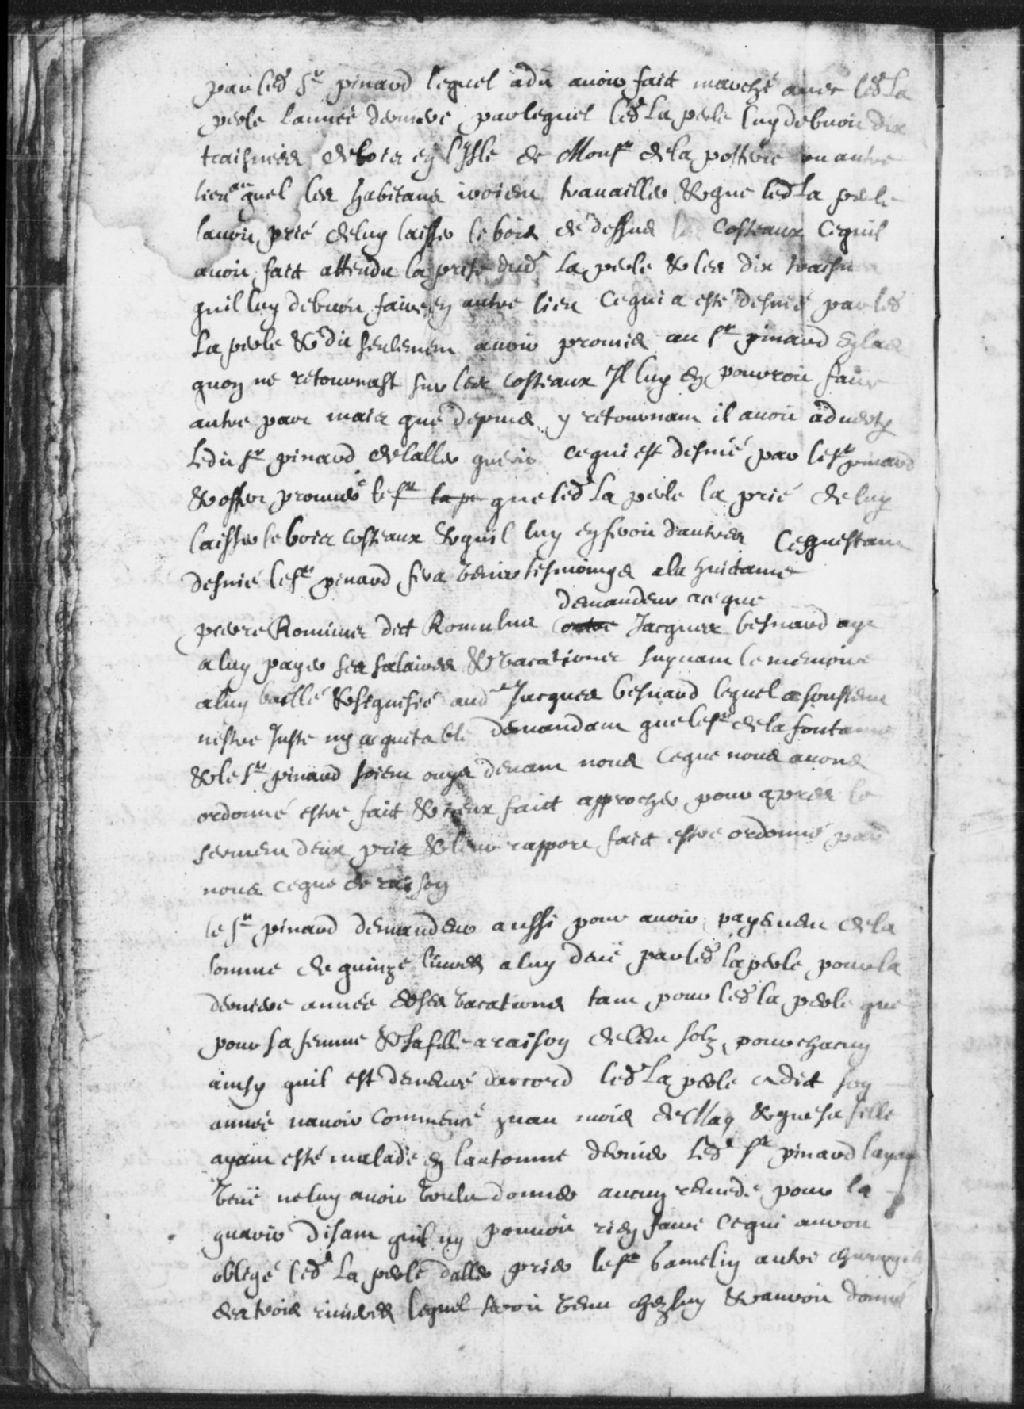 par led Sr pinard lequel a dit avoir fait marché avec led La
perle l'année derniere par lequel led La perle luy debvoit dix
traisnées de bois en l'Isle de Monsr de la potterie ou autre
lieu auquel les habitans iroient travailler & que led La perle
l'avoit prié de luy laisser le bois de dessus les costeaux Ce quil
avoit fait attendu la prise dud La perle & les dix traisn
quil luy debvoit faire en autre lieu Ce qui a esté desnié par led
La perle & dit seulement avoir promis au Sr pinard
quon ne retournast sur les costeaux Il luy en pourroit faire
autre part mais que depuis y retournant il avoit adverty
Ledit Sr pinard de laller querir ce qui est desnié par le Sr pinard
& offert prouver le Sr que led La perle la prié de luy
laisser le bois costeaux & quil luy en feroit d'autres Ce questant
desnié le Sr pinard fera venir tesmoings a la huictaine
demandeur a ce que
pierre Rominier dict Romulus contre Jacques besnard aye
a luy payer ses salaires & vacations suyvant le memoire
a luy baillé & signifié aud Jacques besnard lequel a soustenu
n'estre Juste ny equitable demandant que le Sr de la fontaine
& le Sr pinard soient ouys devant nous Ce que nous avons
ordonné estre fait & iceux faict approcher pour apres le
serment deux pris & leur rapport faict estre ordonné par
nous ce que de raison
le Sr pinard demandeur aussi pour avoir payement de la
somme de quinze livres a luy deüe par led la perle pour la
derniere année & ses vacations tant pour led la perle que
pour sa femme & sa fille a raison de cent solz pour chacun
ainsy quil est demeuré d'accord led La perle a dict son
année n'avoir commencé quau mois de May & que sa fille
ayant esté malade en l'automne dernier led Sr pinard layant
veüe ne luy avoir voulu donner aucun remede pour la
guarir disant quil ny pouvoit rien faire ce qui auroit
obligé led La perle daller prier le Sr hamelin autre chirurgien
des trois rivieres lequel seroit venu chez luy & auroit donné